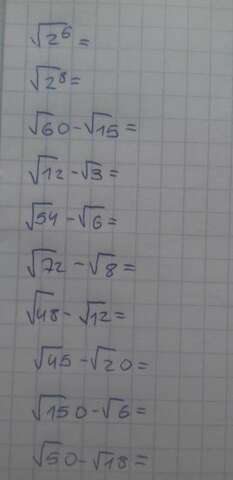 √2⁶ =
√2⁸ =
√60 - √15 =
√12 - √3 =
√54 - √6 =
√72 - √8 =
√48 - √12 =
√45 - √20 =
√150 - √6 =
√50 - √18 =